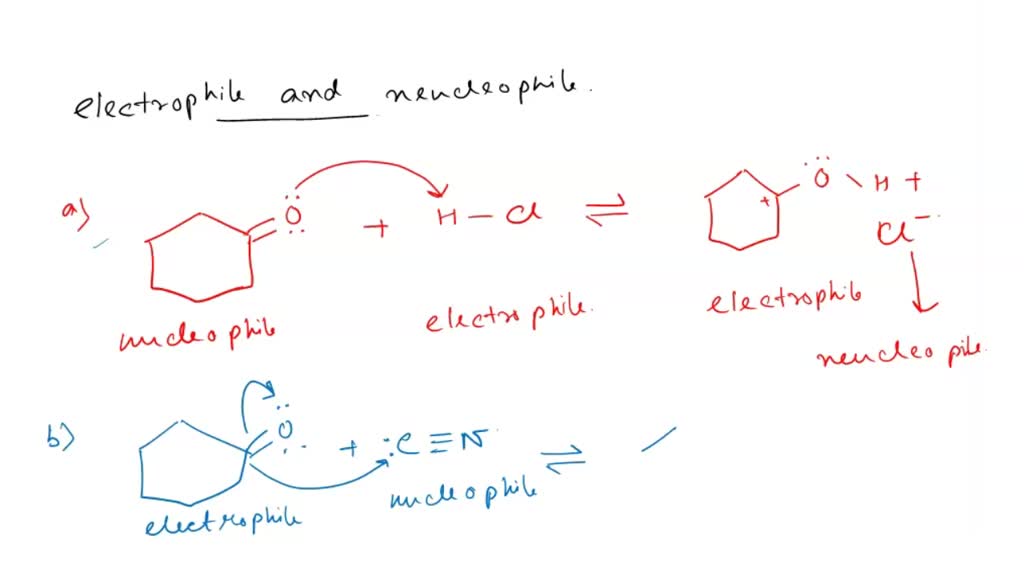 electrophile and neucleophile.
a) Ö: + H – Cl ⇌ Ö \ H +
+ Cl⁻
nucleophile electrophile. electrophile
neucleo pile.
b) Ö: + :C ≡ N ⇌
electrophile nucleophile